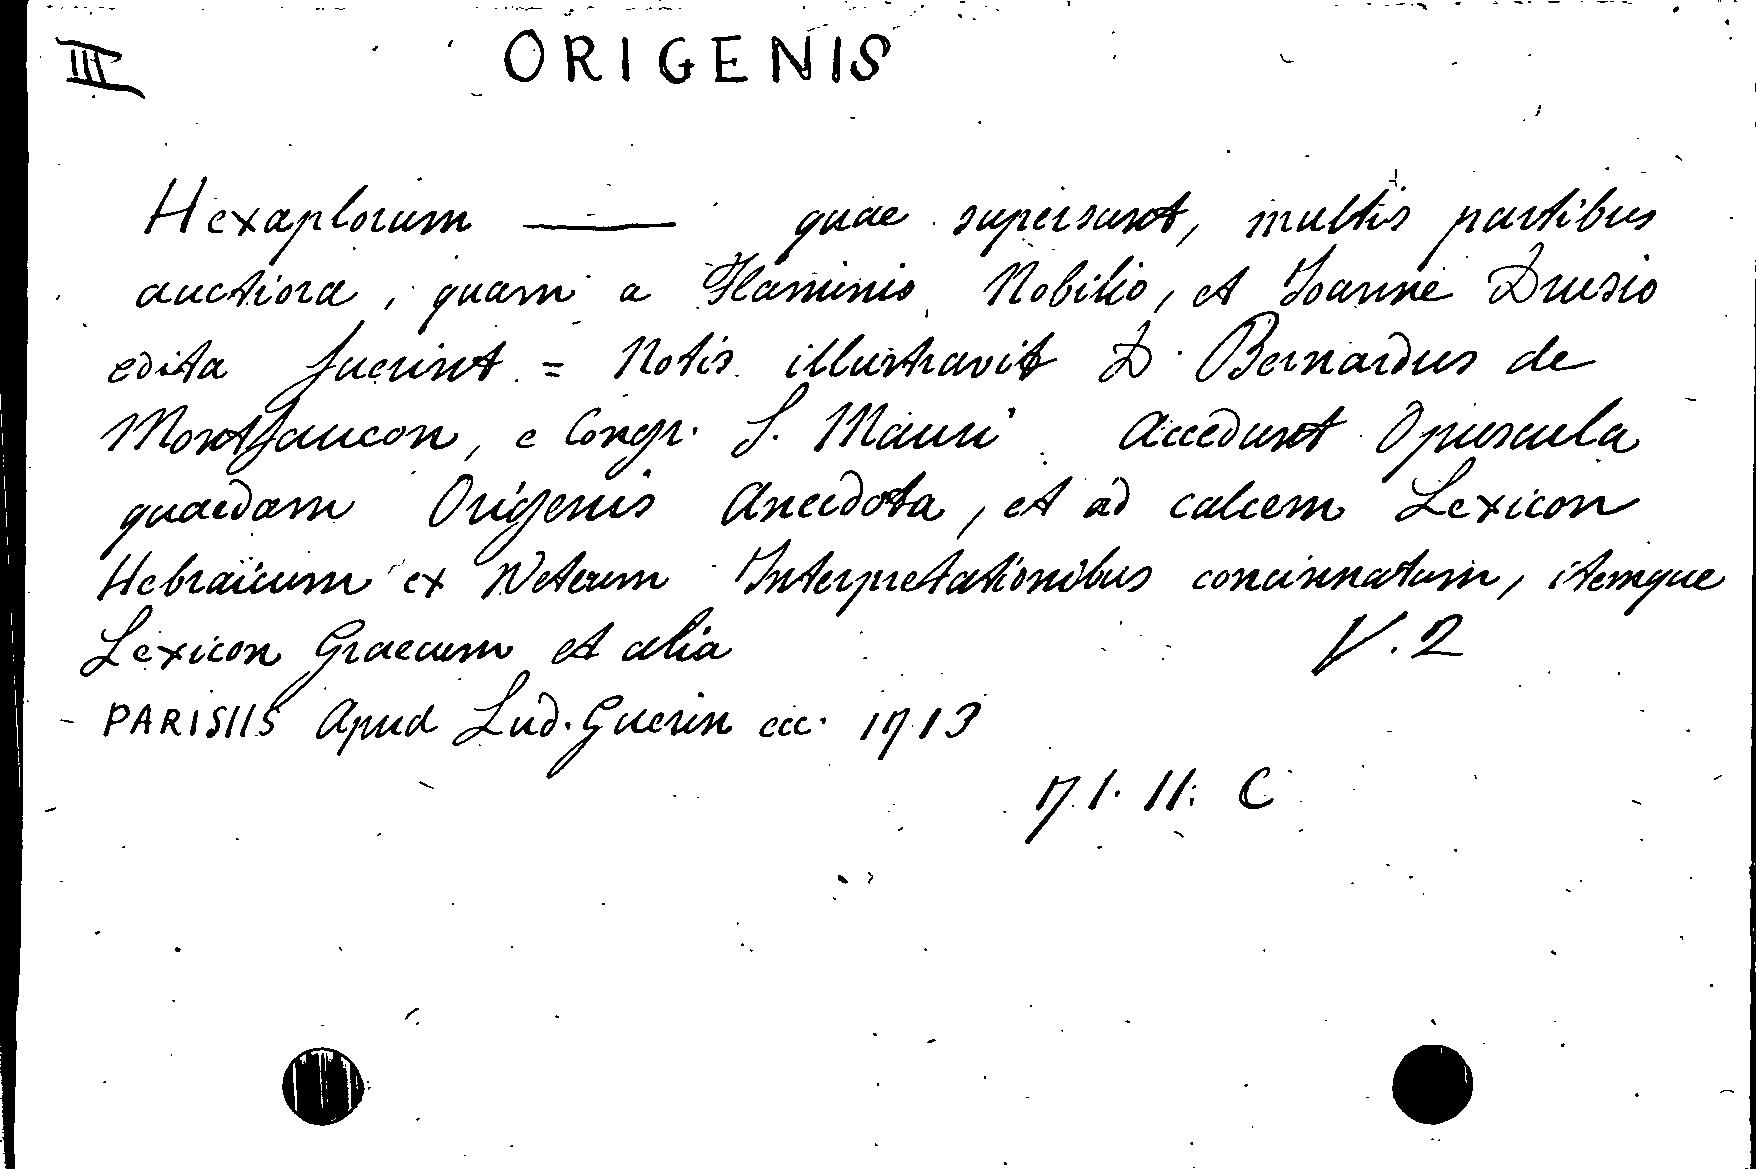 III
ORIGENIS
Hexaplorum —— quae supersunt, multis partibus
auctiora, quam a Flaminio Nobilio, et Joanne Drusio
edita fuerint = Notis illustravit D. Bernardus de
Montfaucon, e Congr. S. Mauri Accedunt Opuscula
quaedam Origenis Anecdota, et ad calcem Lexicon
Hebraicum ex Veterum Interpretationibus concinnatum, itemque
Lexicon Graecum et alia V. 2
PARISIIS Apud Lud. Guerin ecc. 1713
71. 11. C